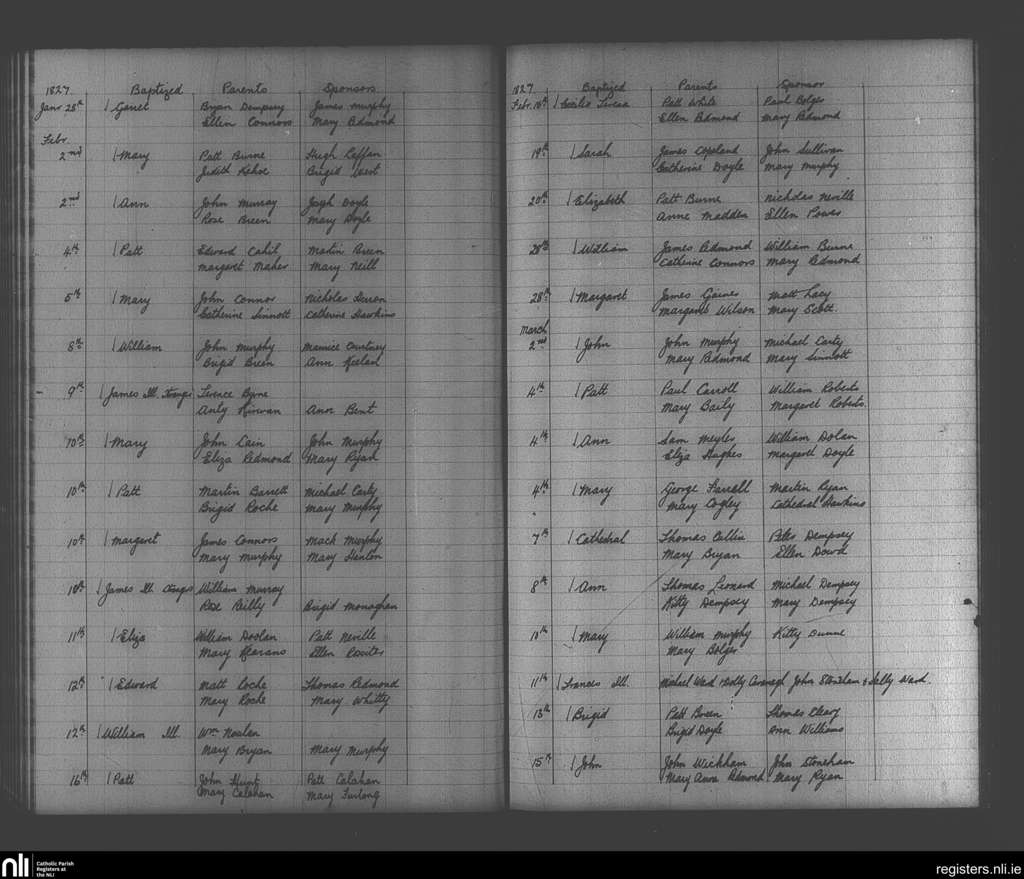 1827. Baptized Parents Sponsors
Janr 28th Garret Bryan Dempsey James Murphy
Ellen Connors Mary Redmond
Febr
2nd Mary Patt Burne Hugh Caffan
Judith Kehoe Brigid West
2nd Ann John Murray Joseph Doyle
Rose Breen Mary Doyle
4th Patt Edward Cahil Martin Breen
Margaret Maher Mary Neill
5th Mary John Connor Nicholas
Catherine Sinnott Catherine Hawkins
8th William John Murphy Maurice Courtney
Brigid Breen Ann Keelan
9th James Ill. Terence Byrne
Anty Kirwan Ann Bent
10th Mary John Cain John Murphy
Eliza Redmond Mary Ryan
10th Patt Martin Barrett Michael Carty
Brigid Roche Mary Murphy
10th Margaret James Connors Mack Murphy
Mary Murphy Mary Hanlon
10th James Ill. William Murray
Rose Reilly Brigid Monaghan
11th Eliza William Doolan Patt Neville
Mary Kearans Ellen Rositer
12th Edward Matt Roche Thomas Redmond
Mary Roche Mary Whitty
12th William Ill. Wm Nealan
Mary Bryan Mary Murphy
16th Patt John Hunt Patt Calahan
Mary Calahan Mary Furlong
1827 Baptized Parents Sponsor
Febr. 18th Patt White Paul Bolger
Ellen Redmond Mary Redmond
19th Sarah James Copeland John Sullivan
Catherine Doyle Mary Murphy
20th Elizabeth Patt Burne Nicholas Neville
Anne Madden Ellen Power
28th William James Redmond William Burne
Catherine Connors Mary Redmond
28th Margaret James Gaines Matt Lacy
Margaret Wilson Mary Scott.
March
2nd John John Murphy Michael Carty
Mary Redmond Mary Sinnott
4th Patt Paul Carroll William Roberts
Mary Baily Margaret Roberts.
4th Ann Sam Meyler William Dolan
Eliza Hughes Margaret Doyle
4th Mary George Farrell Martin Ryan
Mary Cogley Cathedral Hawkins
7th Cathedral Thomas Cullin Peter Dempsey
Mary Bryan Ellen Dowd
8th Ann Thomas Leonard Michael Dempsey
Kitty Dempsey Mary Dempsey
10th Mary William Murphy Kitty Dunne
Mary Bolger
11th Francis Ill. Michael Ward Molly Cavanagh John Stoneham & Sally Ward.
13th Brigid Patt Breen Thomas Cleary
Brigid Doyle Ann Williams
15th John John Wickham John Stoneham
Mary Ann Redmond Mary Ryan
nli Catholic Parish
Registers at
the NLI
registers.nli.ie